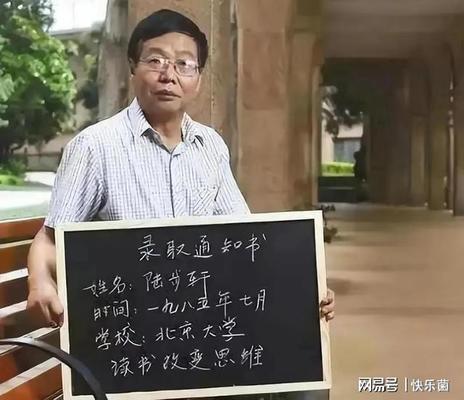 录取通知书
姓名：陆步轩
时间：一九八五年七月
学校：北京大学
读书改变思维
网易号 | 快乐菌